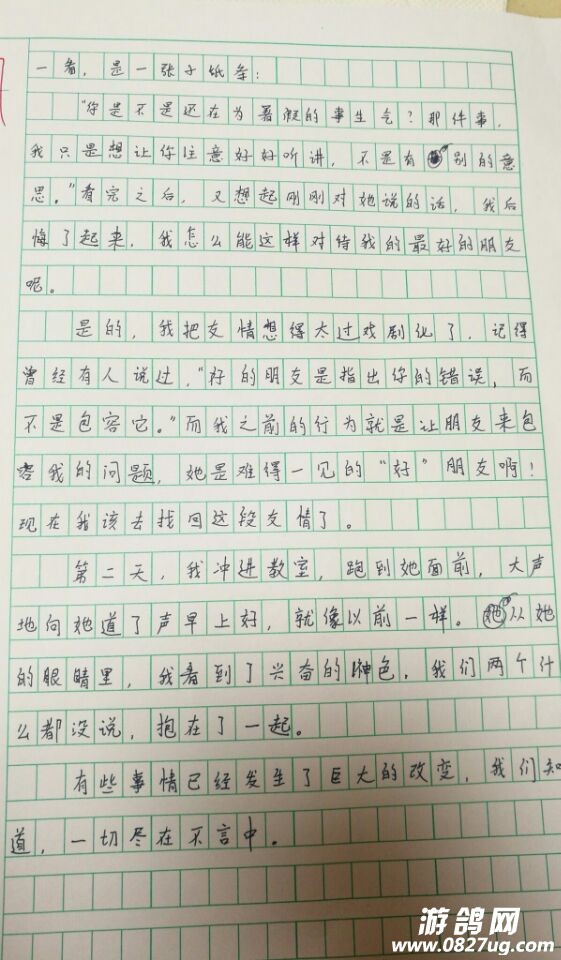 一看，是一张小纸条：
“你是不是还在为暑假的事生气？那件事，
我只是想让你注意好好听讲，不是有别的意
思。”看完之后，又想起刚刚对她说的话，我后
悔了起来，我怎么能这样对待我的最好的朋友
呢。
是的，我把友情想得太过戏剧化了，记得
曾经有人说过，“好的朋友是指出你的错误，而
不是包容它。”而我之前的行为就是让朋友来包
容我的问题，她是难得一见的“好”朋友啊！
现在我该去找回这段友情了。
第二天，我冲进教室，跑到她面前，大声
地向她道了声早上好，就像以前一样。从她
的眼睛里，我看到了兴奋的神色，我们两个什
么都没说，抱在了一起。
有些事情已经发生了巨大的改变，我们知
道，一切尽在不言中。
游鸽网
www.0827ug.com